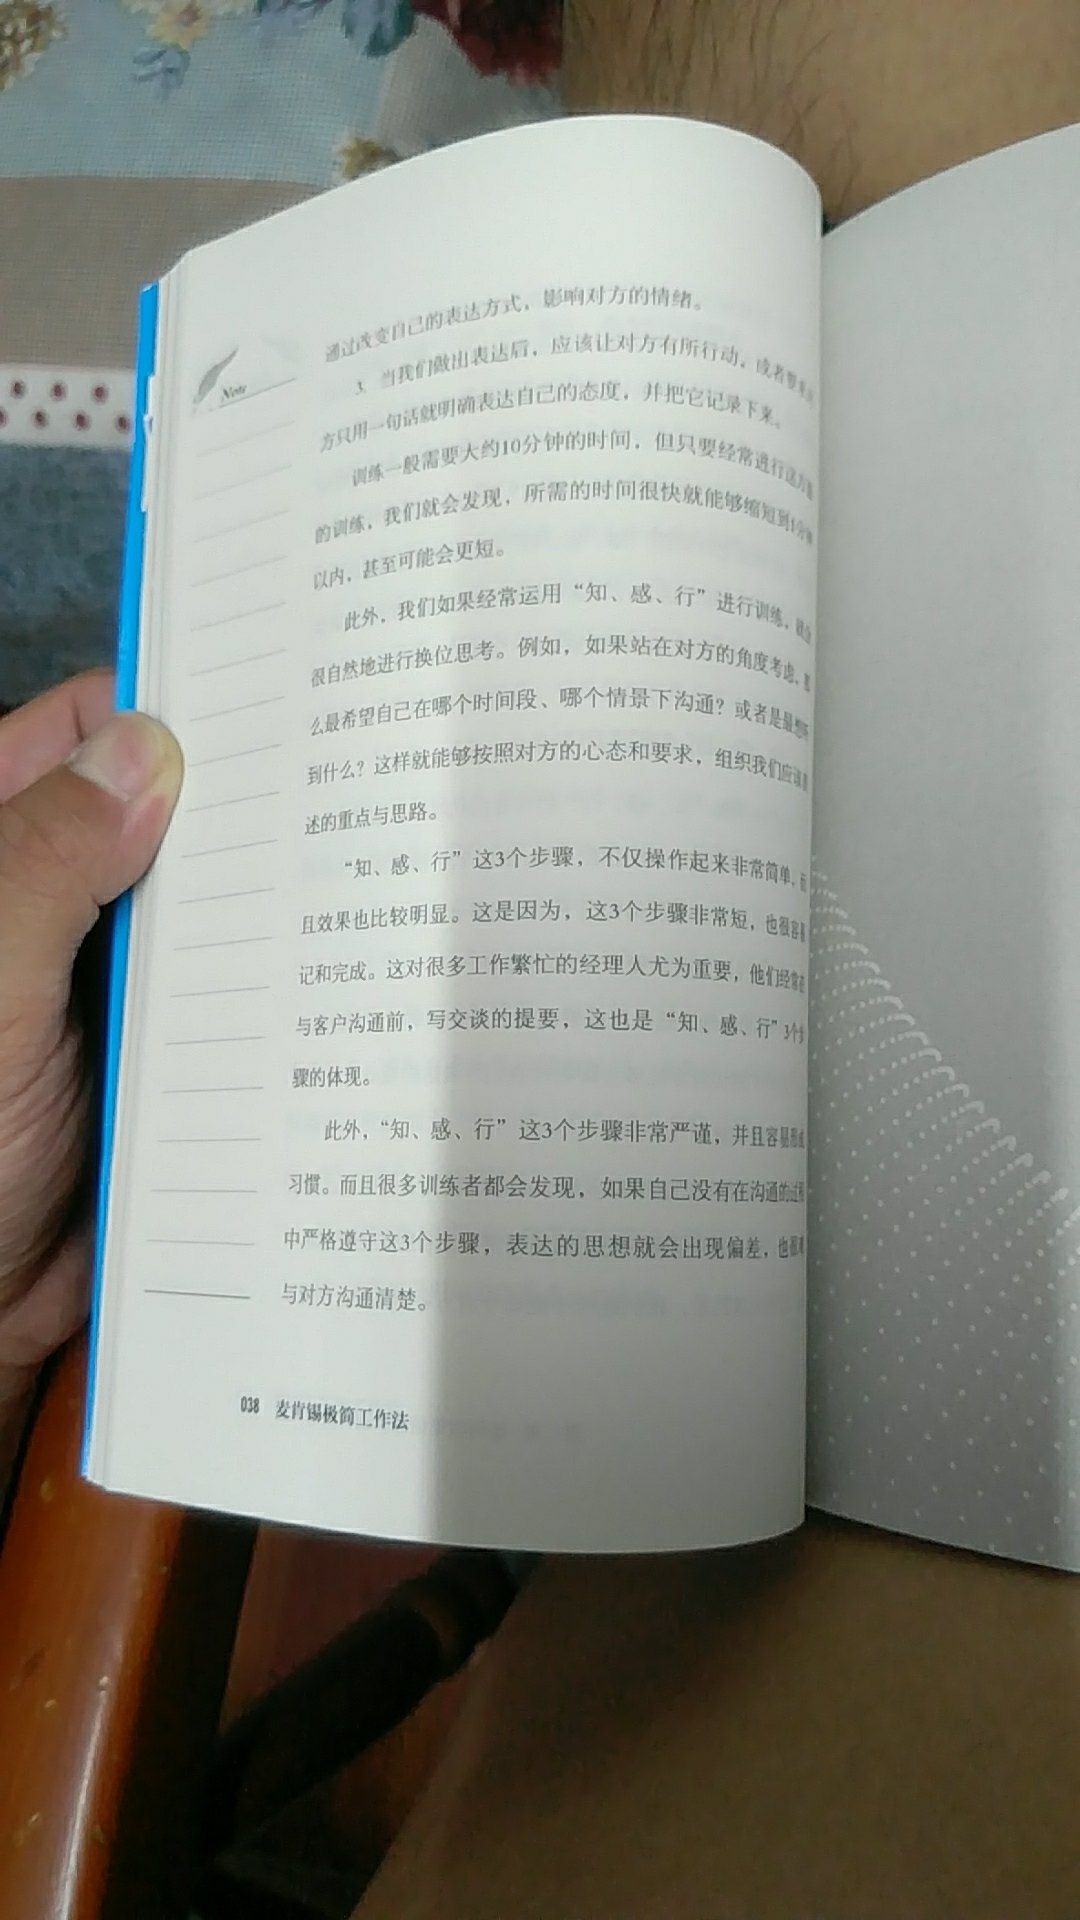 Note
通过改变自己的表达方式，影响对方的情绪。
3. 当我们做出表达后，应该让对方有所行动，或者要求
方只用一句话就明确表达自己的态度，并把它记录下来。
训练一般需要大约10分钟的时间，但只要经常进行这方面
的训练，我们就会发现，所需的时间很快就能够缩短到1分钟
以内，甚至可能会更短。
此外，我们如果经常运用“知、感、行”进行训练，就会
很自然地进行换位思考。例如，如果站在对方的角度考虑，那
么最希望自己在哪个时间段、哪个情景下沟通？或者是最想听
到什么？这样就能够按照对方的心态和要求，组织我们应该
述的重点与思路。
“知、感、行”这3个步骤，不仅操作起来非常简单，而
且效果也比较明显。这是因为，这3个步骤非常短，也很容易
记和完成。这对很多工作繁忙的经理人尤为重要，他们经常在
与客户沟通前，写交谈的提要，这也是“知、感、行”3个步
骤的体现。
此外，“知、感、行”这3个步骤非常严谨，并且容易形成
习惯。而且很多训练者都会发现，如果自己没有在沟通的过程
中严格遵守这3个步骤，表达的思想就会出现偏差，也很难
与对方沟通清楚。
038 麦肯锡极简工作法